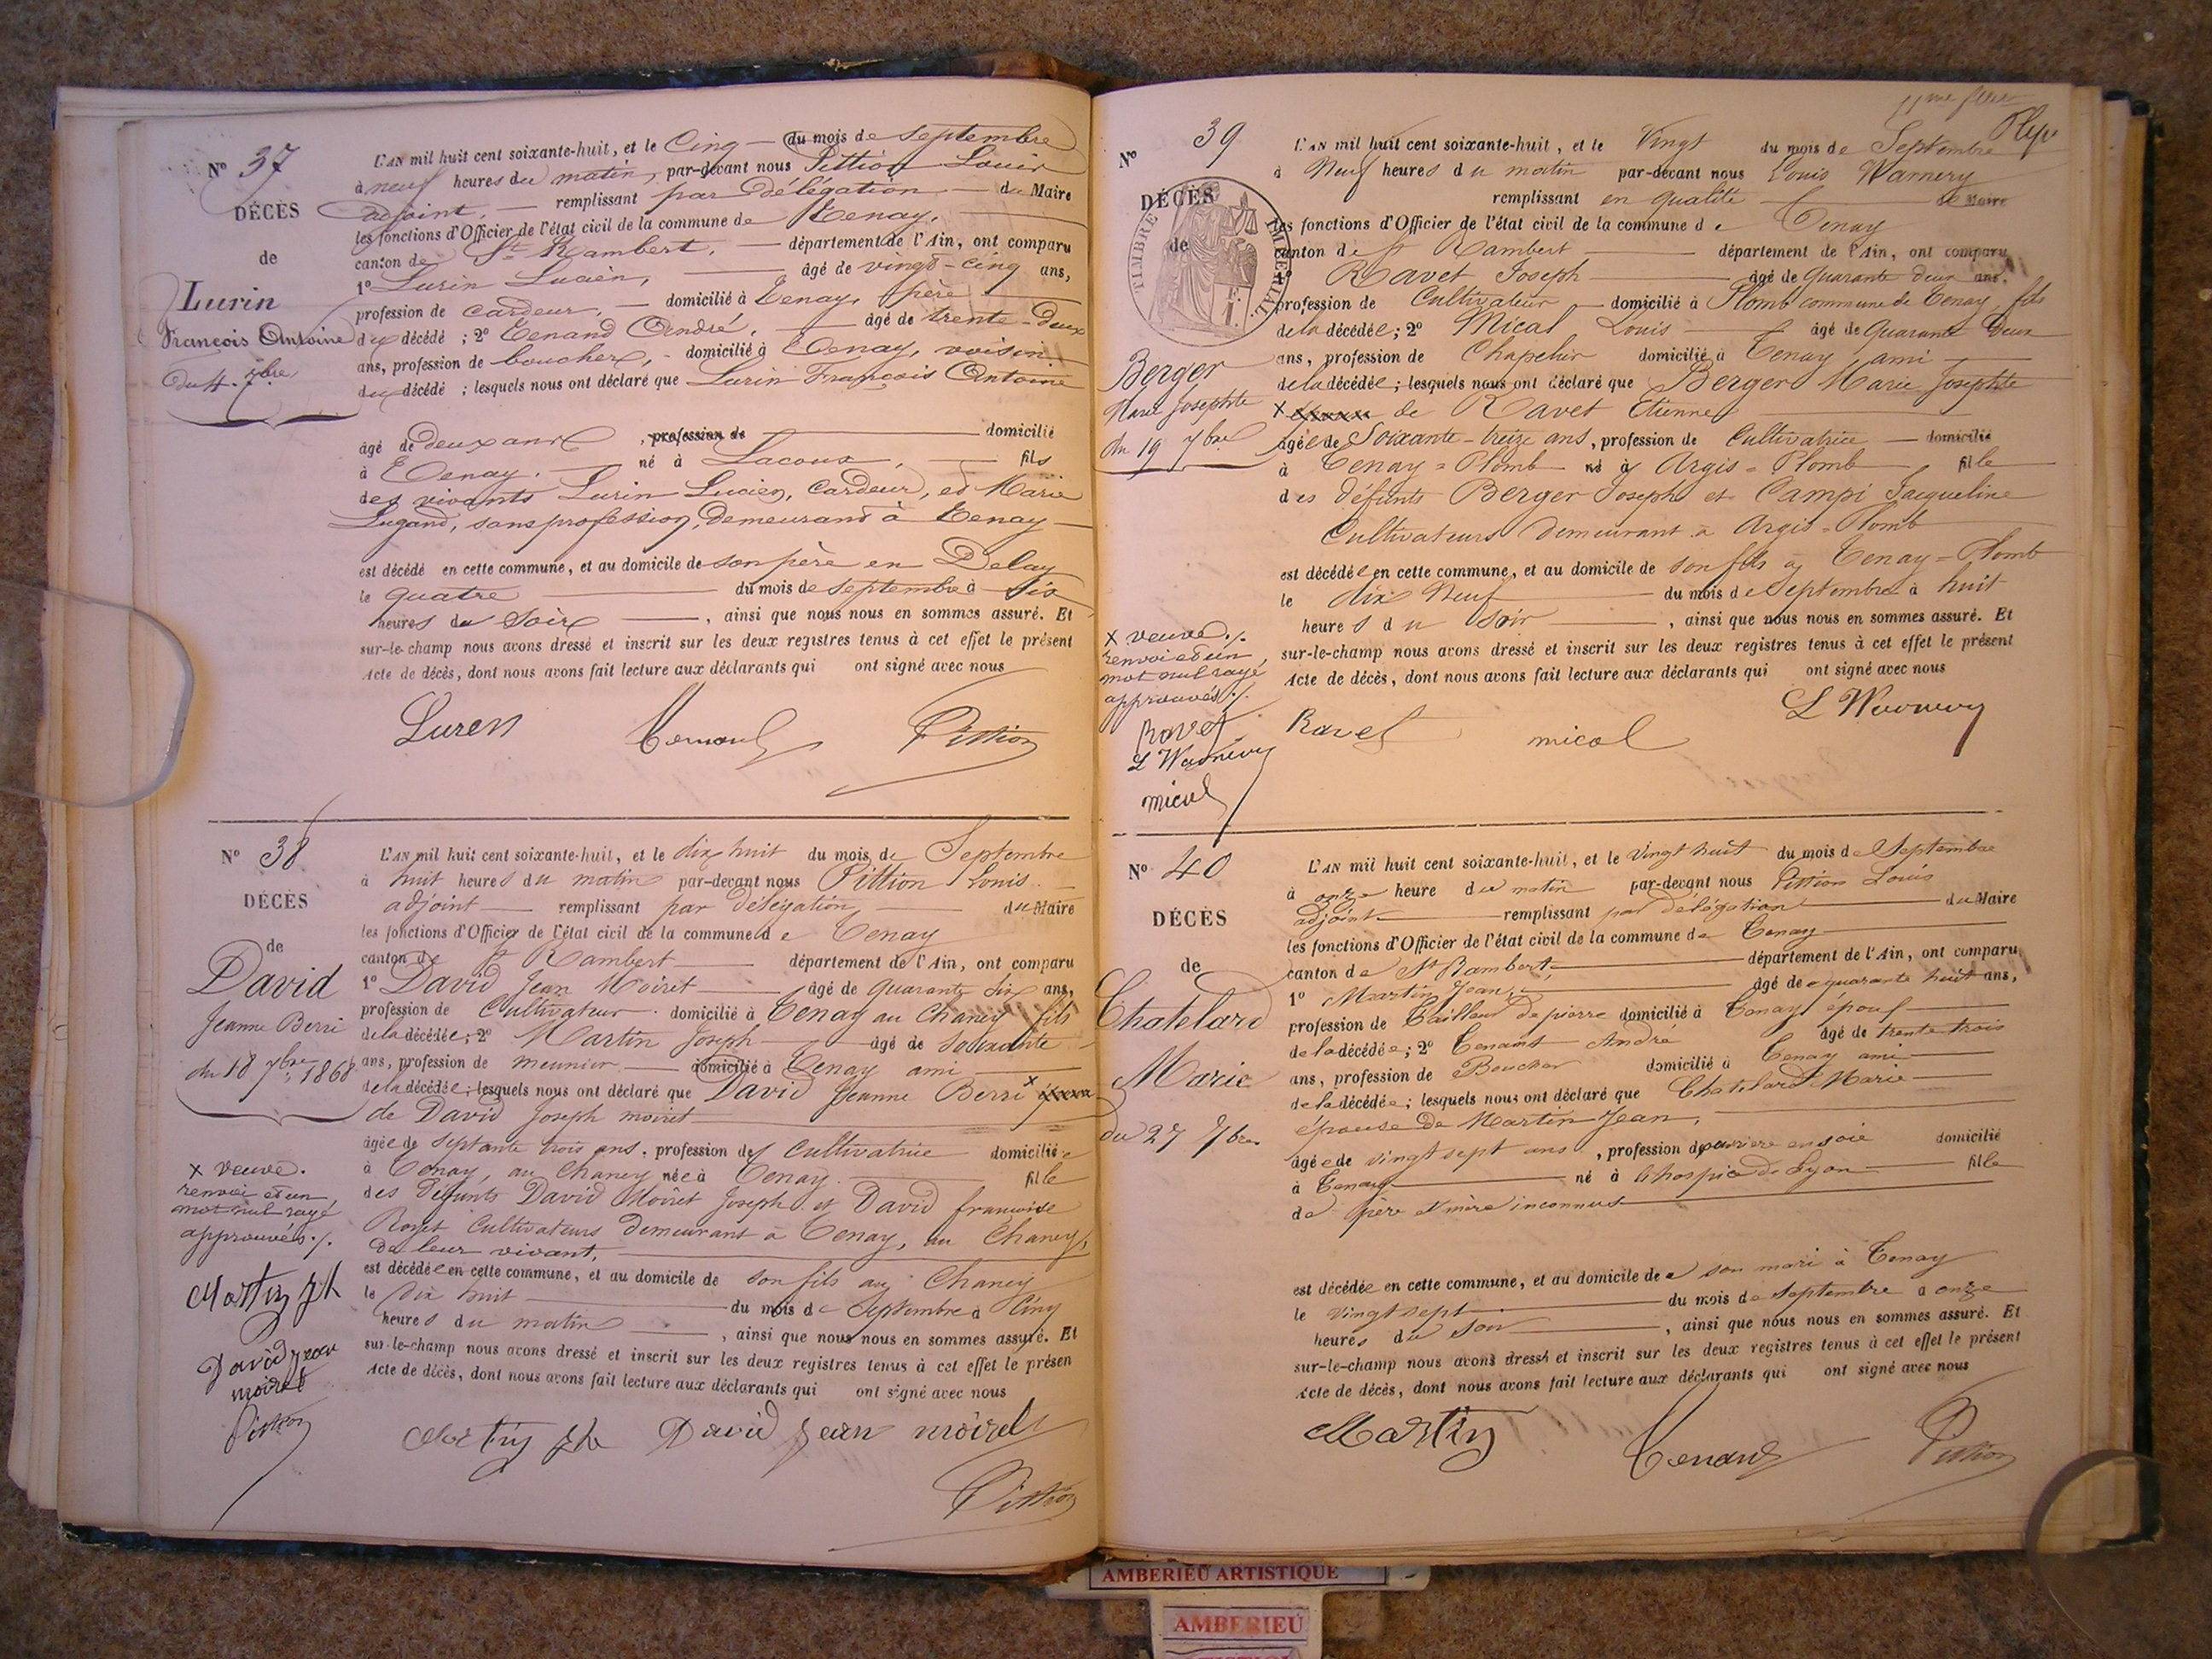 N° 37
DÉCÈS
de
Lurin
François Antoine
du 4. 7bre
L'AN mil huit cent soixante-huit, et le Cinq du mois de Septembre
à neuf heures du matin, par-devant nous Pittion Louis
adjoint, remplissant par délégation du Maire
les fonctions d'Officier de l'état civil de la commune de Tenay,
canton de St Rambert, département de l'Ain, ont comparu
1° Lurin Lucien, âgé de vingt-cinq ans,
profession de cardeur, domicilié à Tenay, père
du décédé ; 2° Tenand André, âgé de trente-deux
ans, profession de boucher, domicilié à Tenay, voisin
du décédé ; lesquels nous ont déclaré que Lurin François Antoine
âgé de deux ans, profession de domicilié
à Tenay. né à Lacoux, fils
des vivants Lurin Lucien, cardeur, et Marie
Lugand, sans profession, demeurant à Tenay
est décédé en cette commune, et au domicile de son père en Delay
le quatre du mois de septembre à six
heures du soir, ainsi que nous nous en sommes assuré. Et
sur-le-champ nous avons dressé et inscrit sur les deux registres tenus à cet effet le présent
Acte de décès, dont nous avons fait lecture aux déclarants qui ont signé avec nous
Luren Tenand Pittion
N° 38
DÉCÈS
de
David
Jeanne Berri
du 18 7bre 1868
x veuve.
renvoi et un
mot nul rayé
approuvés ./.
Martin Jh
David Jean
moiret
Pittion
L'AN mil huit cent soixante-huit, et le dix huit du mois de Septembre
à huit heures du matin par-devant nous Pittion Louis
adjoint remplissant par délégation du Maire
les fonctions d'Officier de l'état civil de la commune de Tenay
canton de St Rambert département de l'Ain, ont comparu
1° David Jean Moiret âgé de quarante six ans,
profession de Cultivateur domicilié à Tenay au Chaney fils
de la décédée; 2° Martin Joseph âgé de soixante
ans, profession de meunier domicilié à Tenay ami
de la décédée; lesquels nous ont déclaré que David Jeanne Berri x
de David Joseph moiret
âgée de septante trois ans, profession de Cultivatrice domiciliée
à Tenay, au Chaney née à Tenay. fille
des défunts David Moiret Joseph et David francoise
Royet Cultivateurs demeurant à Tenay, au Chaney,
de leur vivant,
est décédée en cette commune, et au domicile de son fils au Chaney
le dix huit du mois de Septembre à Cinq
heures du matin, ainsi que nous nous en sommes assuré. Et
sur-le-champ nous avons dressé et inscrit sur les deux registres tenus à cet effet le présen
Acte de décès, dont nous avons fait lecture aux déclarants qui ont signé avec nous
Martin Jh David Jean moiret
Pittion
N° 39
DÉCÈS
de
TIMBRE IMPÉRIAL
Berger
Marie Josephte
du 19 7bre
x veuve ./.
renvoi et un
mot nul rayé
approuvés ./.
Ravet
L Warnery
micol
L'AN mil huit cent soixante-huit, et le Vingt du mois de Septembre
à Neuf heures du matin par-devant nous Louis Warnery
remplissant en qualité de Maire
les fonctions d'Officier de l'état civil de la commune de Tenay
canton de St Rambert département de l'Ain, ont comparu
1° Ravet Joseph âgé de quarante deux ans.
profession de Cultivateur domicilié à Plomb commune de Tenay, fils
de la décédée; 2° Micol Louis âgé de quarante deux
ans, profession de Chapelier domicilié à Tenay ami
de la décédée; lesquels nous ont déclaré que Berger Marie Josephte
x de Ravet Etienne
âgée de Soixante-treize ans, profession de Cultivatrice domicilié
à Tenay = Plomb né à Argis = Plomb fille
des défunts Berger Joseph et Campi Jacqueline
Cultivateurs demeurant à Argis = Plomb
est décédée en cette commune, et au domicile de son fils à Tenay = Plomb
le dix Neuf du mois de Septembre à huit
heures du soir, ainsi que nous nous en sommes assuré. Et
sur-le-champ nous avons dressé et inscrit sur les deux registres tenus à cet effet le présent
Acte de décès, dont nous avons fait lecture aux déclarants qui ont signé avec nous
L Warnery
Ravet micol
N° 40
DÉCÈS
de
Chatelard
Marie
du 27 7bre
L'AN mil huit cent soixante-huit, et le Vingt huit du mois de Septembre
à onze heure du matin par-devant nous Pittion Louis
adjoint remplissant par délégation du Maire
les fonctions d'Officier de l'état civil de la commune de Tenay
canton de St Rambert, département de l'Ain, ont comparu
1° Martin Jean, âgé de quarante huit ans,
profession de Tailleur de pierre domicilié à Tenay époux
de la décédée; 2° Tenant André âgé de trente trois
ans, profession de Boucher domicilié à Tenay ami
de la décédée; lesquels nous ont déclaré que Chatelard Marie
épouse de Martin Jean,
âgée de vingt sept ans, profession d'ouvrière en soie domicilié
à Tenay né à l'hospice de Lyon fille
de père et mère inconnus
est décédée en cette commune, et au domicile de son mari à Tenay
le vingt sept du mois de Septembre à onze
heures du soir, ainsi que nous nous en sommes assuré. Et
sur-le-champ nous avons dressé et inscrit sur les deux registres tenus à cet effet le présent
Acte de décès, dont nous avons fait lecture aux déclarants qui ont signé avec nous
Martin Tenand Pittion
AMBERIEU ARTISTIQUE
AMBERIEU